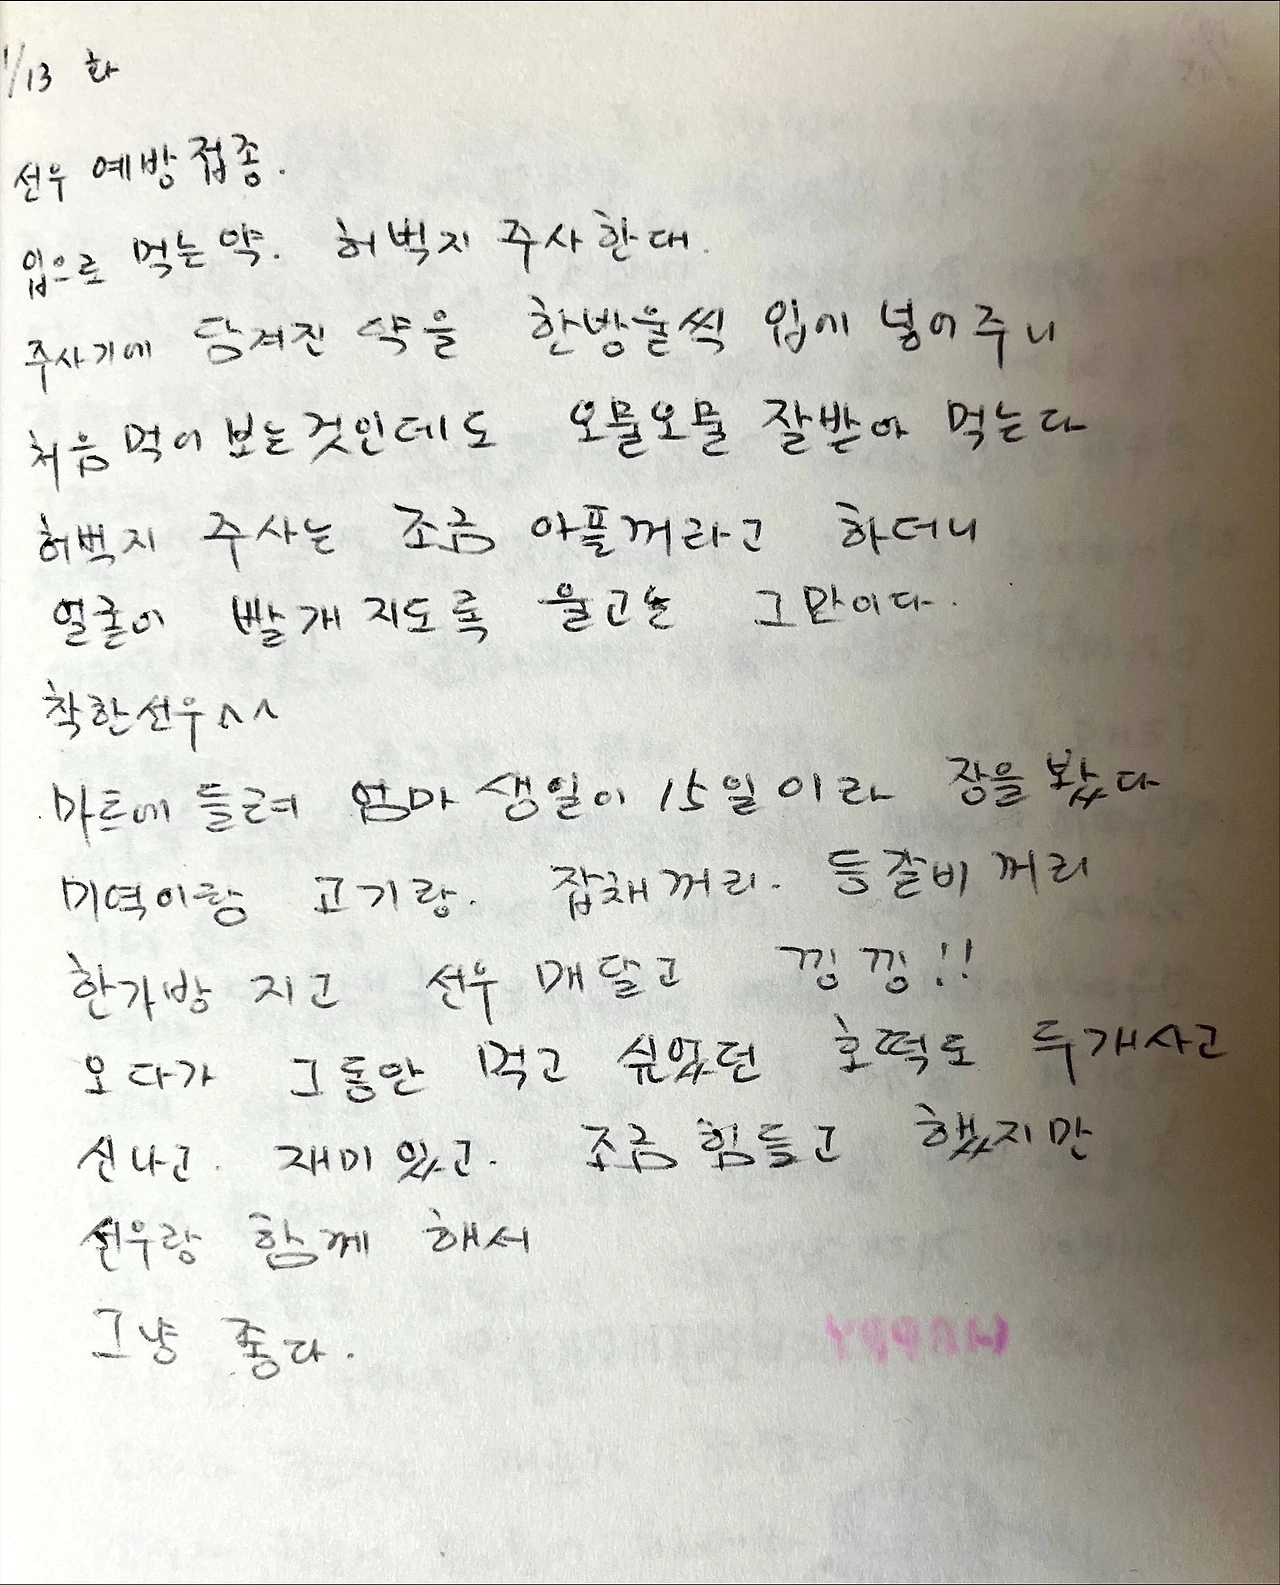 1/13 화
선우 예방접종.
입으로 먹는약. 허벅지 주사한대.
주사기에 담겨진 약을 한방울씩 입에 넣어주니
처음 먹어보는것인데도 오물오물 잘받아 먹는다
허벅지 주사는 조금 아플꺼라고 하더니
얼굴이 빨개지도록 울고는 그만이다.
착한선우^^
마트에 들려 엄마 생일이 15일이라 장을 봤다
미역이랑 고기랑. 잡채꺼리. 등갈비꺼리
한가방 지고 선우 매달고 낑낑!!
오다가 그동안 먹고 싶었던 호떡도 두개사고
신나고. 재미있고. 조금 힘들고 했지만
선우랑 함께 해서
그냥 좋다.
HAPPY